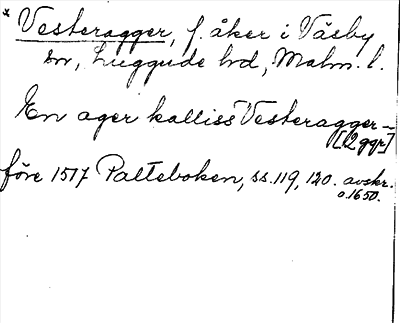 * Vesteragger, f. åker i Väsby
sn, Luggude hd, Malm. l.
En ager kalliss Vesteragger –
[2 ggr]
före 1517 Palteboken, ss. 119, 120. avskr.
o. 1650.